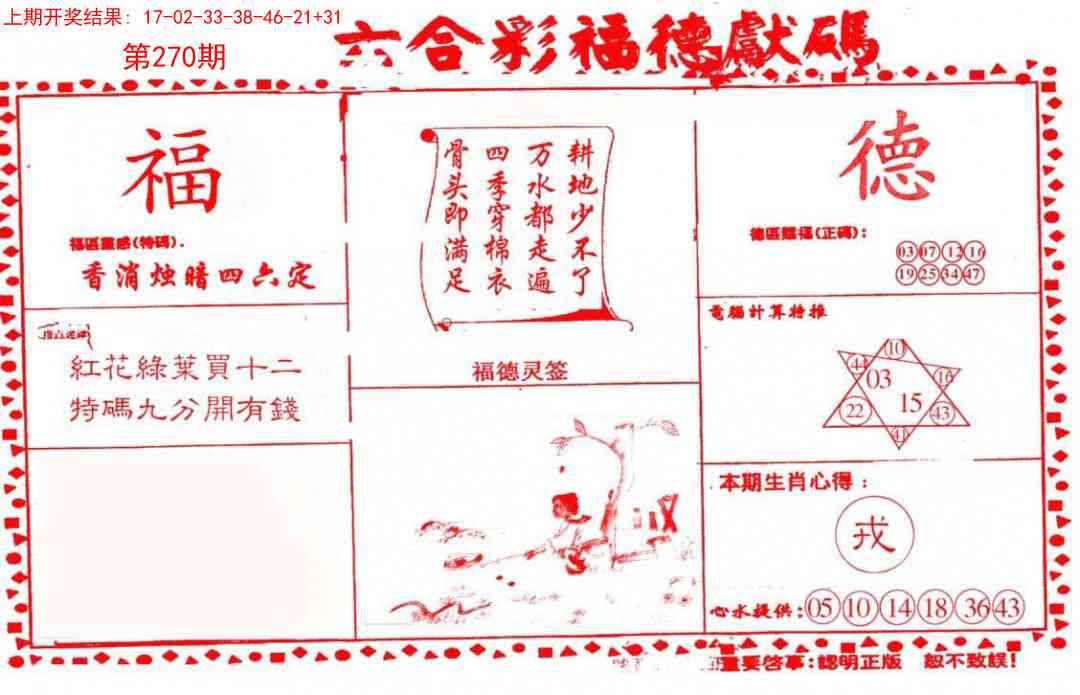 上期开奖结果：17-02-33-38-46-21+31
第270期
六合彩福德獻碼
福
福區靈感(特碼).
香消烛暗四六定
紅花綠葉買十二
特碼九分開有錢
耕地少不了
万水都走遍
四季穿棉衣
骨头即满足
福德灵签
德
德區賜福(正碼)：
03 07 12 16
19 25 34 47
電腦計算特推
10
44 03 16
22 15 43
41
本期生肖心得：
戎
心水提供：05 10 14 18 36 43
重要啓事：認明正版 恕不致誤！